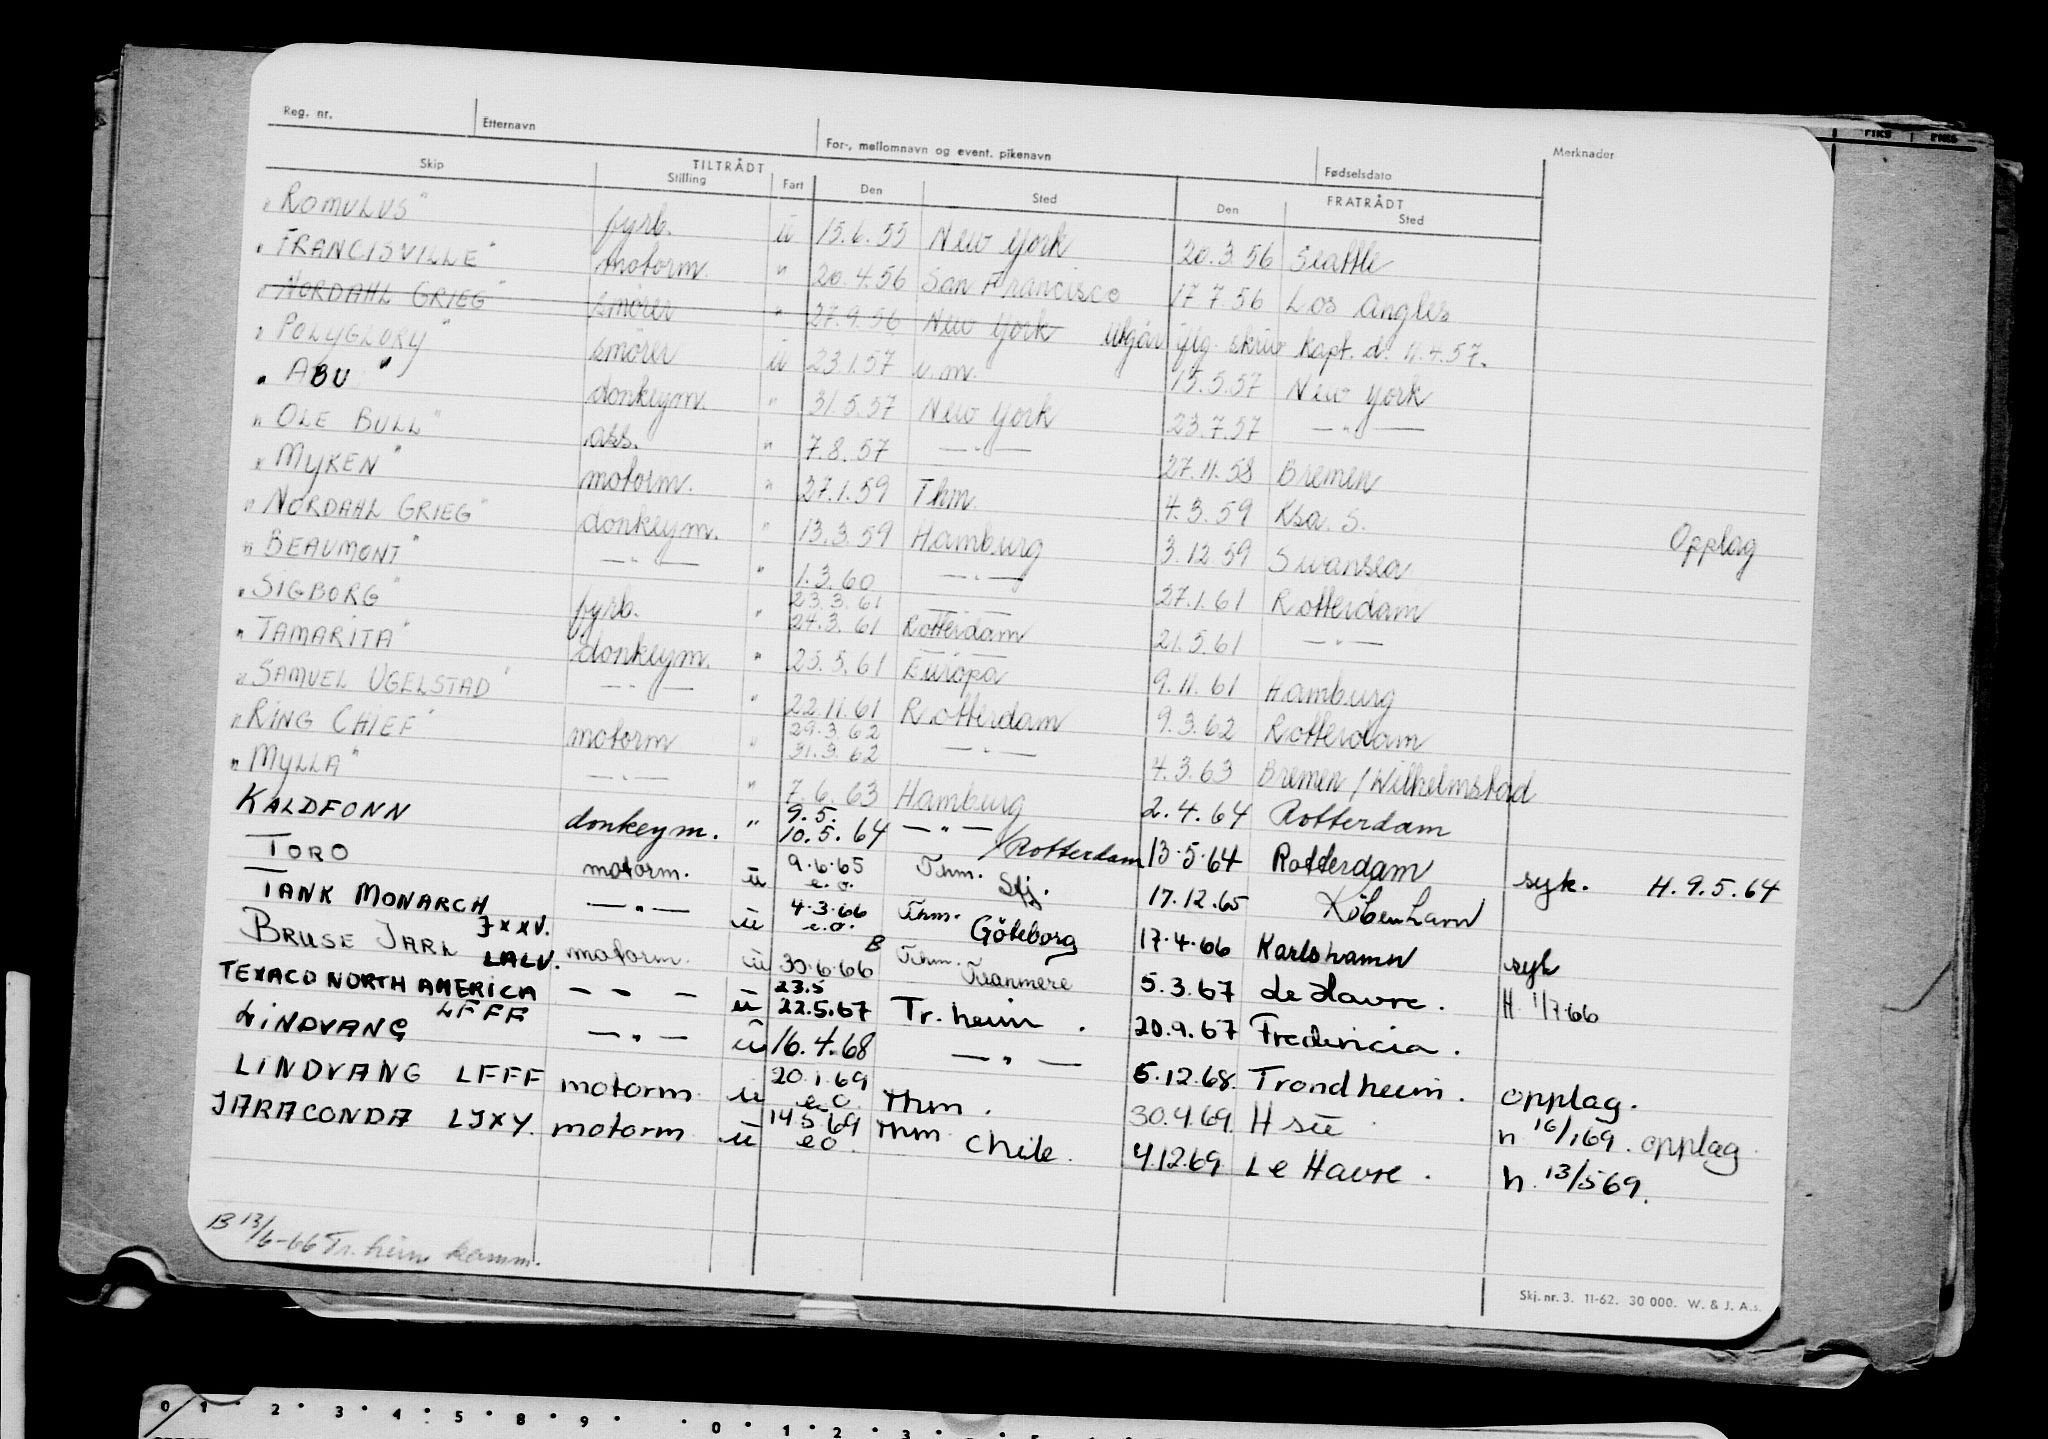 Reg. nr. Etternavn For-, mellomnavn og event. pikenavn Fødselsdato Merknader
TILTRÅDT FRATRÅDT
Skip Stilling Fart Den Sted Den Sted
"ROMULUS" fyrb. ü 15.6.55 New York 20.3.56 Seattle
"FRANCISVILLE" motorm. " 20.4.56 San Francisco 17.7.56 Los Angles
"NORDAHL GRIEG" smører " 27.9.56 New York utgår iflg. skriv kapt. d. 11.4.57.
"POLYGLORY" smører ü 23.1.57 u.m. 15.5.57 New York
"ABU" donkeym. " 31.5.57 New York 23.7.57 — " —
"OLE BULL" ass. " 7.8.57 — " — 27.11.58 Bremen
"MYKEN" motorm. " 27.1.59 Thm. 4.3.59 Ksa. S.
"NORDAHL GRIEG" donkeym. " 13.3.59 Hamburg 3.12.59 Swansea Opplag
"BEAUMONT" — " — " 1.3.60 — " — 27.1.61 Rotterdam
"SIGBORG" fyrb. " 23.3.61 24.3.61 Rotterdam 21.5.61 — " —
"TAMARITA" donkeym. " 25.5.61 Europa 9.11.61 Hamburg
"SAMUEL UGELSTAD" — " — " 22.11.61 Rotterdam 9.3.62 Rotterdam
"RING CHIEF" motorm " 29.3.62 31.3.62 — " — 4.3.63 Bremen/Wilhelmstad
"MYLLA" — " — " 7.6.63 Hamburg 2.4.64 Rotterdam
KALDFONN donkeym. " 9.5. 10.5.64 — " — /Rotterdam 13.5.64 Rotterdam syk. H.9.5.64
TORO motorm. ü 9.6.65 e.o. Thm. Stj. 17.12.65 København
TANK MONARCH JXXV. — " — ü 4.3.66 e.o. Thm. Göteborg 17.4.66 Karlshamn syk
BRUSE JARL LALV. motorm. ü 30.6.66 B Thm. Tranmere 5.3.67 Le Havre. H. 1/7.66
TEXACO NORTH AMERICA — — — ü 23.5 22.5.67 Tr.heim. 20.9.67 Fredericia.
LINDVANG LFFF — " — ü 16.4.68 — " — 5.12.68. Trondheim. opplag.
LINDVANG LFFF motorm ü 20.1.69 e.o. Thm. 30.4.69. H sü. n 16/1 69. opplag.
JARACONDA LJXY. motorm ü 14.5.69 eo. Thm Chile. 4.12.69. Le Havre. h. 13/5 69.
B 13/6-66 Tr.heim komm.
Skj. nr. 3. 11-62. 30 000. W. & J. A.s.